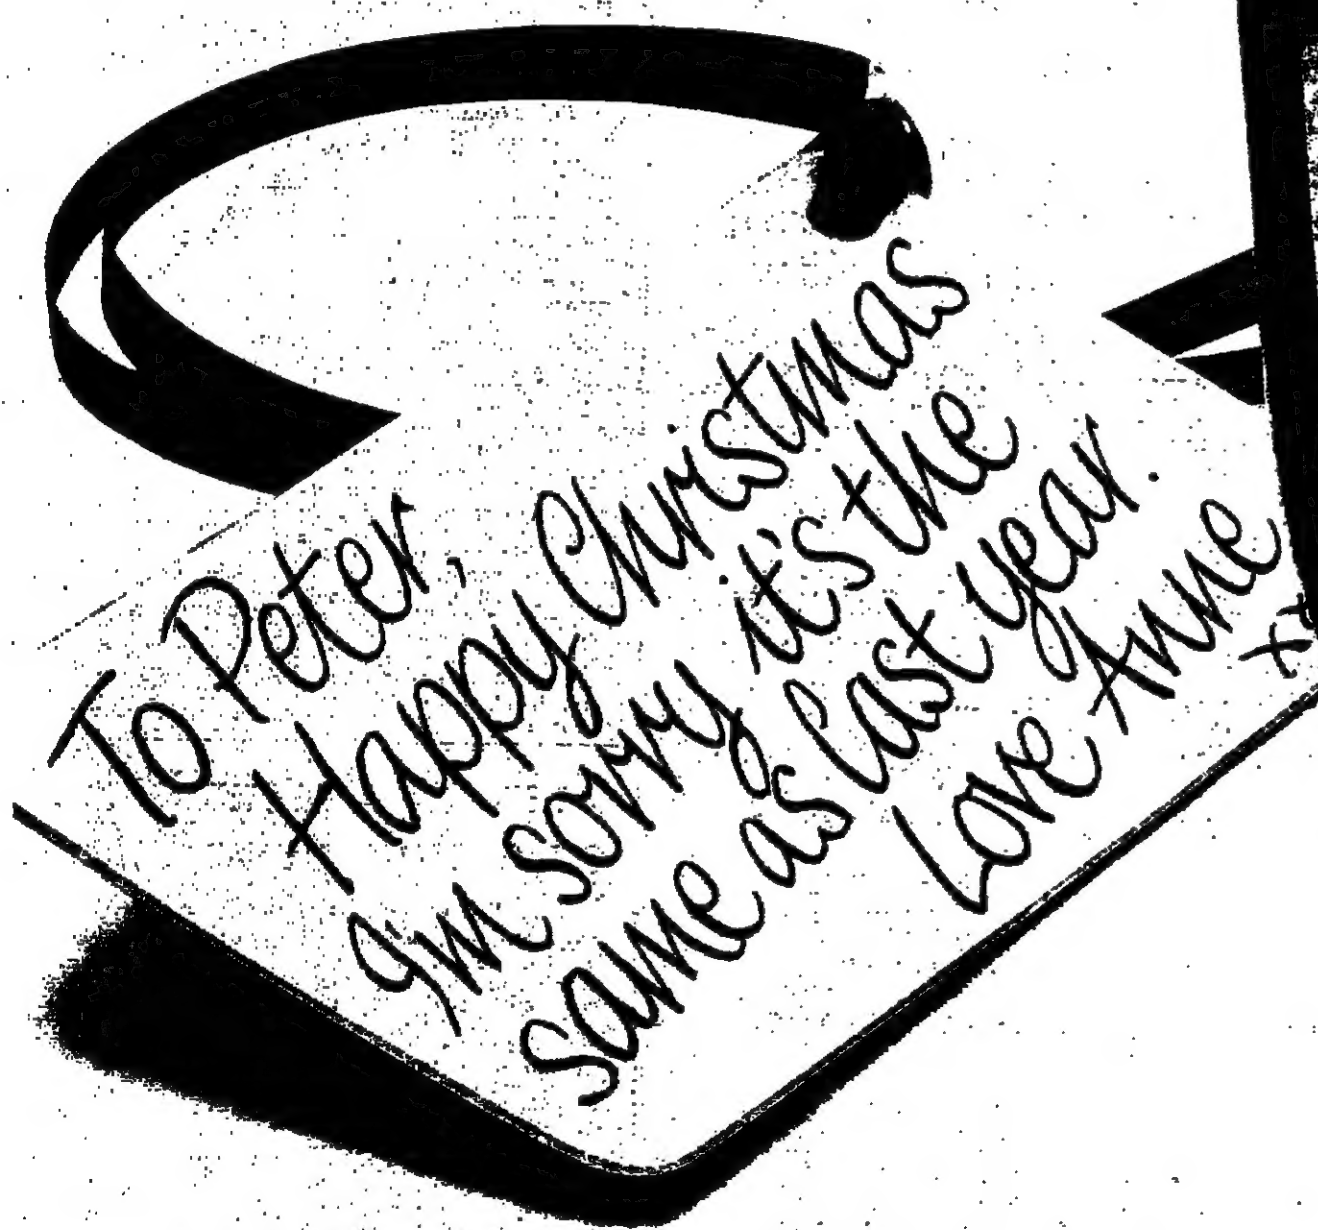 To Peter,
Happy Christmas
I'm sorry it's the
same as last year.
Love Anne
xx